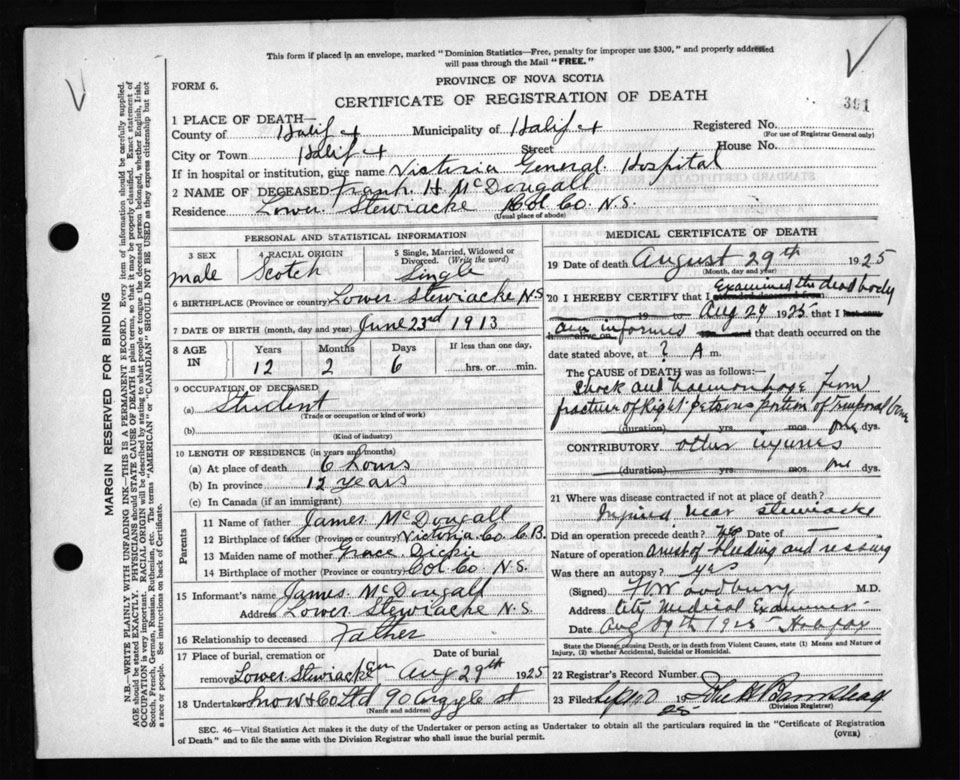 This form if placed in an envelope, marked "Dominion Statistics—Free, penalty for improper use $300," and properly addressed
will pass through the Mail "FREE."
FORM 6.
PROVINCE OF NOVA SCOTIA
CERTIFICATE OF REGISTRATION OF DEATH
391
1 PLACE OF DEATH—
County of Halifax Municipality of Halifax Registered No.
(For use of Registrar General only)
City or Town Halifax Street House No.
If in hospital or institution, give name Victoria General Hospital
2 NAME OF DECEASED Frank H McDougall
Residence Lower Stewiacke Col Co. N.S.
(Usual place of abode)
PERSONAL AND STATISTICAL INFORMATION
3 SEX 4 RACIAL ORIGIN 5 Single, Married, Widowed or
Divorced. (Write the word)
male Scotch Single
6 BIRTHPLACE (Province or country) Lower Stewiacke N.S
7 DATE OF BIRTH (month, day and year) June 23rd 1913
8 AGE IN Years Months Days If less than one day,
12 2 6 hrs. or min.
9 OCCUPATION OF DECEASED
(a) Student
(Trade or occupation or kind of work)
(b)
(Kind of industry)
10 LENGTH OF RESIDENCE (in years and months)
(a) At place of death 6 hours
(b) In province 12 years
(c) In Canada (if an immigrant)
Parents
11 Name of father James McDougall
12 Birthplace of father (Province or country) Victoria Co. C.B.
13 Maiden name of mother Grace Dickie
14 Birthplace of mother (Province or country) Col Co. N.S.
15 Informant's name James McDougall
Address Lower Stewiacke N.S
16 Relationship to deceased Father
17 Place of burial, cremation or Date of burial
removal Lower Stewiacke Aug 29th 1925
18 Undertaker Snow & Co Ltd 90 Argyle st
(Name and address)
MEDICAL CERTIFICATE OF DEATH
19 Date of death August 29th 1925
(Month, day and year)
20 I HEREBY CERTIFY that I attended deceased from Examined the dead body
19 to Aug 29 1925 that I last saw
h alive on am informed that death occurred on
date stated above, at ? A m.
The CAUSE of DEATH was as follows:—
Shock and haemorrhage from
fracture of Right petrous portion of Temporal bone
(duration) yrs. mos. one dys.
CONTRIBUTORY other injuries
(duration) yrs. mos. one dys.
21 Where was disease contracted if not at place of death?
Injured near Stewiacke
Did an operation precede death? Yes Date of
Nature of operation arrest of bleeding and
Was there an autopsy? yes
(Signed) Woodbury M.D.
Address City Medical Examiner
Date Aug 29th 1925 Halifax
State the Disease causing Death, or in death from Violent Causes, state (1) Means and Nature of
Injury, (2) whether Accidental, Suicidal or Homicidal.
22 Registrar's Record Number
23 Filed Sept 19 25
(Division Registrar)
SEC. 46—Vital Statistics Act makes it the duty of the Undertaker or person acting as Undertaker to obtain all the particulars required in the "Certificate of Registration
of Death" and to file the same with the Division Registrar who shall issue the burial permit.
(OVER)
MARGIN RESERVED FOR BINDING
N.B.—WRITE PLAINLY WITH UNFADING INK—THIS IS A PERMANENT RECORD. Every item of information should be carefully supplied.
AGE should be stated EXACTLY. PHYSICIANS should STATE CAUSE OF DEATH in plain terms, so that it may be properly classified. Exact statement of
OCCUPATION is very important. RACIAL ORIGIN will be described by stating to what people or tongue the deceased person belonged, whether English, Irish,
Scotch, French, German, Russian, Ruthenian, etc. The terms "AMERICAN" or "CANADIAN" SHOULD NOT BE USED as they express citizenship but not
a race or people. See instructions on back of Certificate.